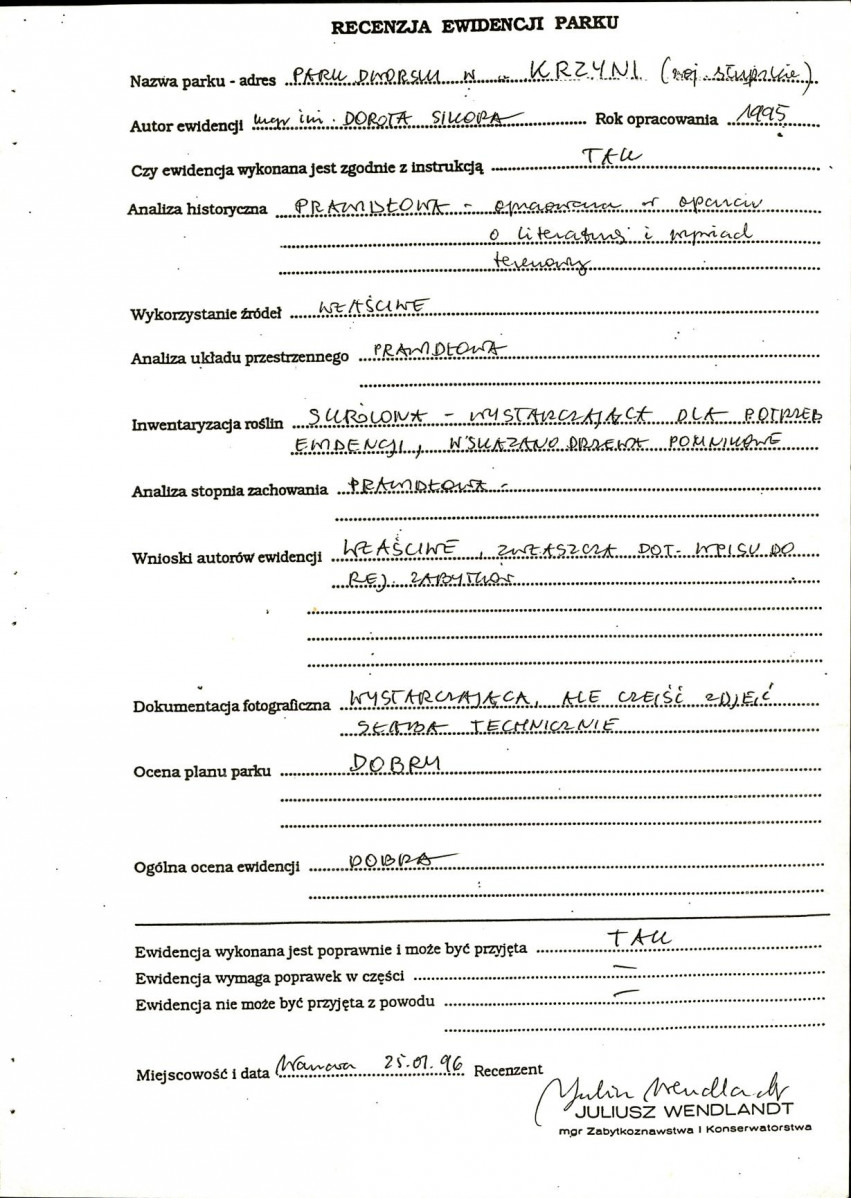 RECENZJA EWIDENCJI PARKU
Nazwa parku - adres PARK DWORSKI W KRZYNI (woj. słupskie)
Autor ewidencji mgr inż. DOROTA SIKORA Rok opracowania 1995
Czy ewidencja wykonana jest zgodnie z instrukcją TAK
Analiza historyczna PRAWIDŁOWA - opracowana w oparciu
o literaturę i wywiad
terenowy
Wykorzystanie źródeł WŁAŚCIWE
Analiza układu przestrzennego PRAWIDŁOWA
Inwentaryzacja roślin SKRÓCONA - WYSTARCZAJĄCA DLA POTRZEB
EWIDENCJI, WSKAZANO DRZEWA POMNIKOWE
Analiza stopnia zachowania PRAWIDŁOWA -
Wnioski autorów ewidencji WŁAŚCIWE, ZWŁASZCZA DOT. WPISU DO
REJ. ZABYTKÓW
Dokumentacja fotograficzna WYSTARCZAJĄCA, ALE CZĘŚĆ ZDJĘĆ
SŁABA TECHNICZNIE
Ocena planu parku DOBRY
Ogólna ocena ewidencji DOBRA
Ewidencja wykonana jest poprawnie i może być przyjęta TAK
Ewidencja wymaga poprawek w części —
Ewidencja nie może być przyjęta z powodu —
Miejscowość i data Warszawa 25.01.96 Recenzent
Juliusz Wendlandt
JULIUSZ WENDLANDT
mgr Zabytkoznawstwa i Konserwatorstwa